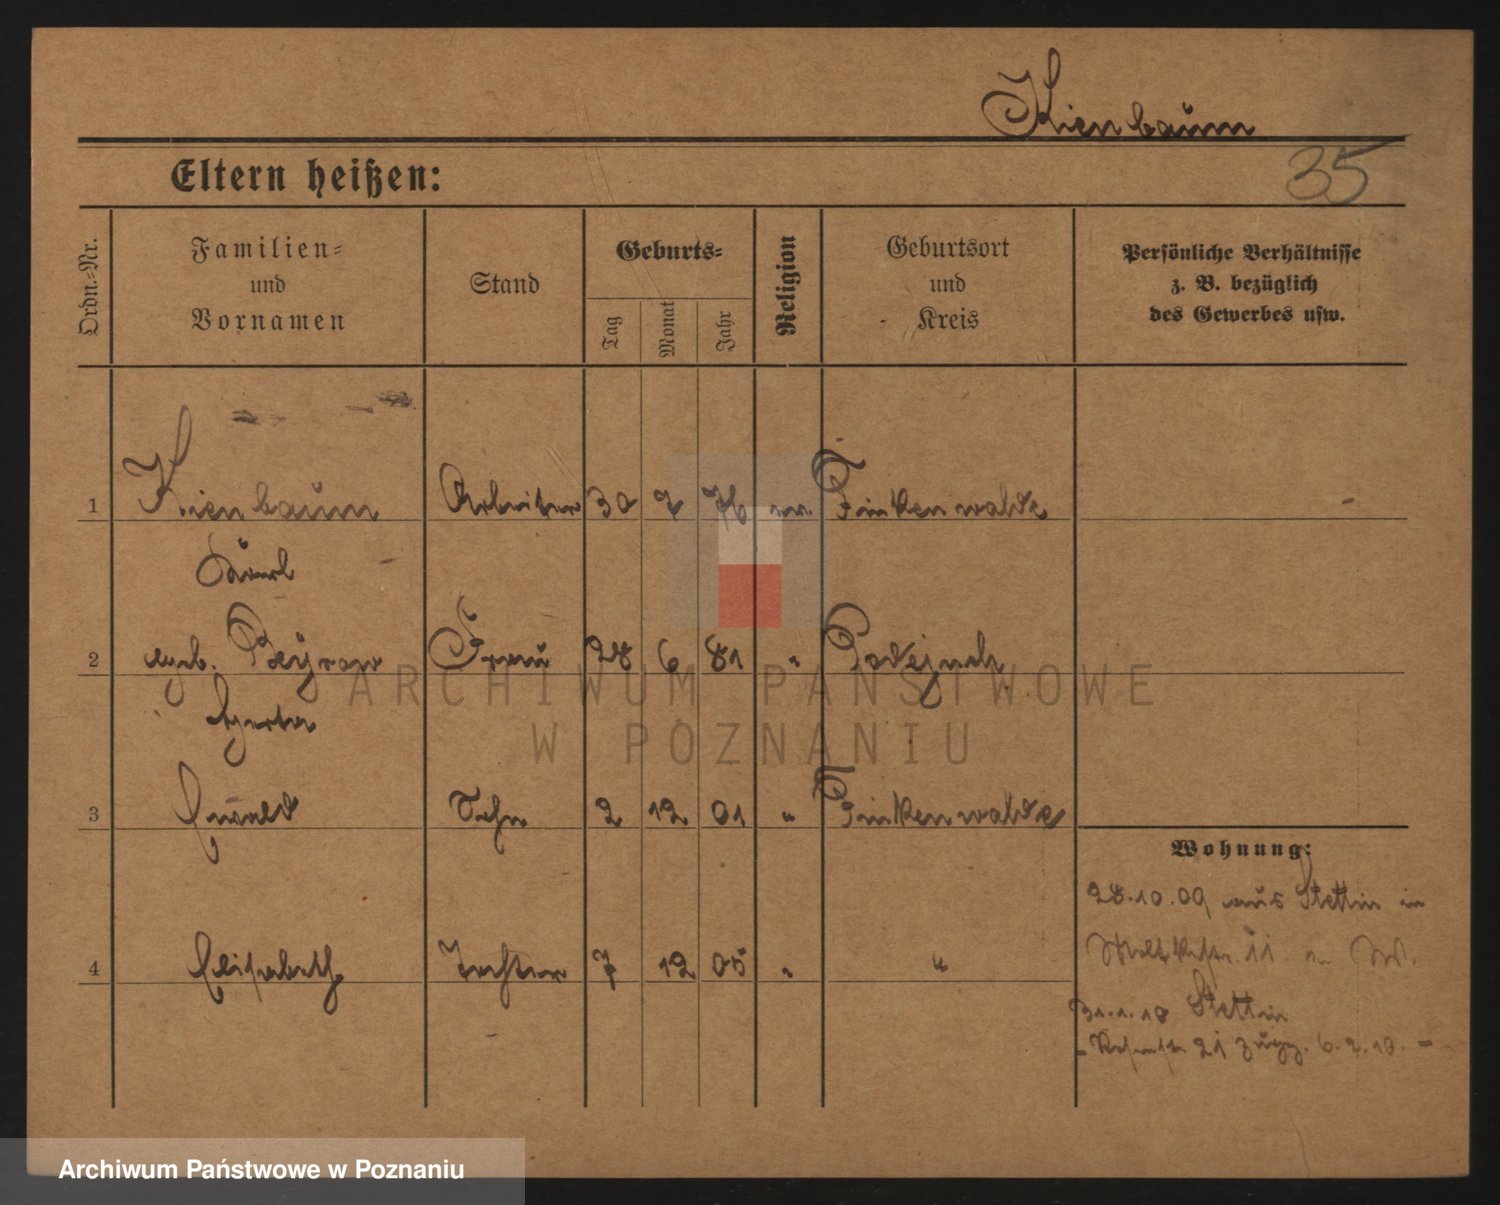 Kienbaum
35
Eltern heißen:
Ordn.-Nr.
Familien-
und
Vornamen
Stand
Geburts-
Tag
Monat
Jahr
Religion
Geburtsort
und
Kreis
Persönliche Verhältnisse
z. B. bezüglich
des Gewerbes usw.
1 Kienbaum Arbeiter 30 7 76 ev. Finkenwalde
Karl
2 geb. Frau 28 6 81 " Podejuch
3 Ewald Sohn 2 12 01 " Finkenwalde
4 Elisabeth Tochter 7 12 05 " "
Wohnung:
28.10.09 aus Stettin in
Moltkestr. 11
31.1.10 Stettin
21 6.2.10. -
ARCHIWUM PAŃSTWOWE
W POZNANIU
Archiwum Państwowe w Poznaniu